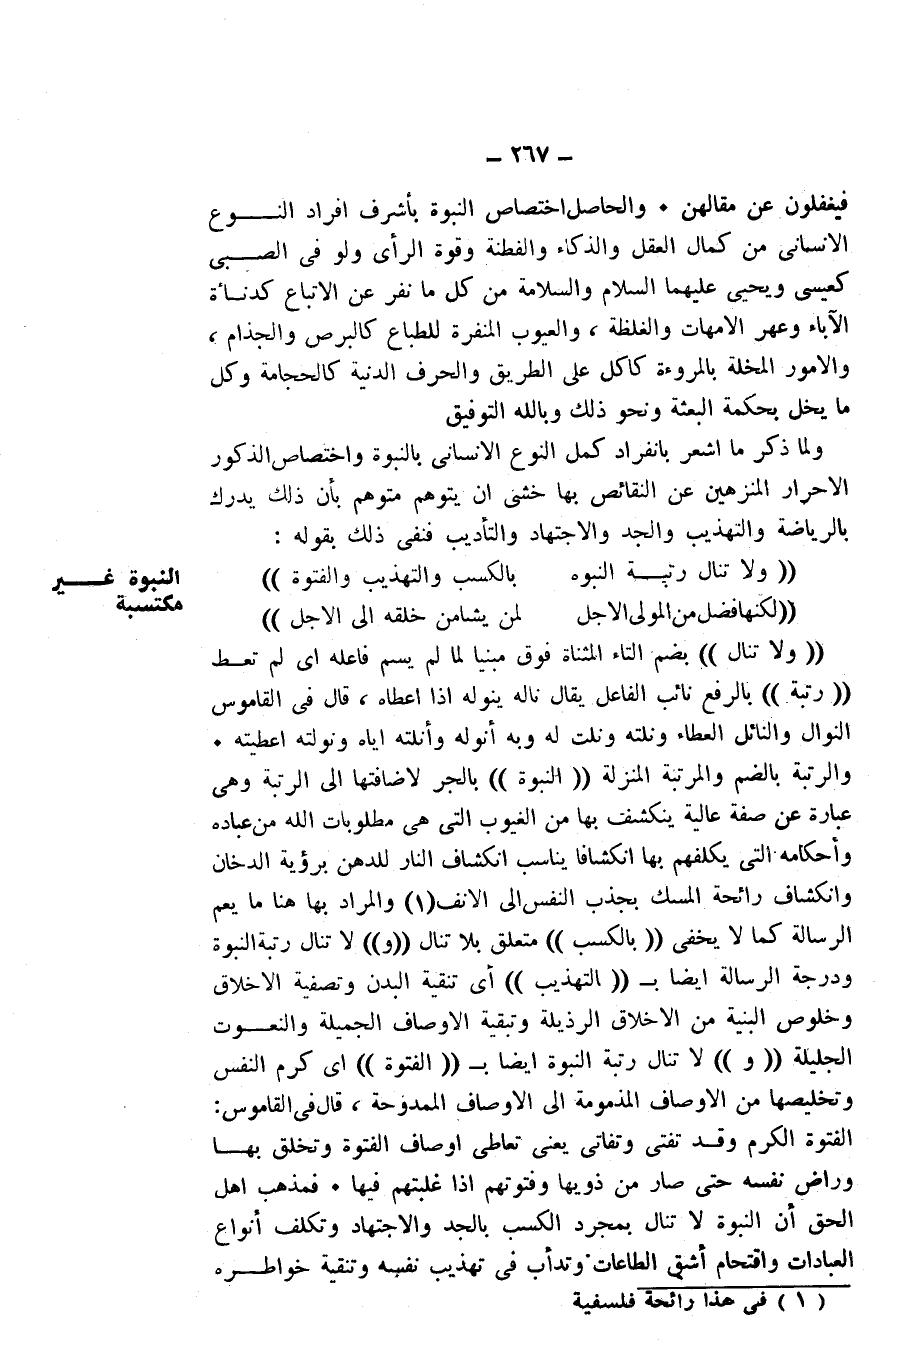 — ٢٦٧ —
فيغفلون عن مقالهن · والحاصل اختصاص النبوة بأشرف افراد النـــوع
الانسانى من كمال العقل والذكاء والفطنة وقوة الرأى ولو فى الصــبى
كعيسى ويحيى عليهما السلام والسلامة من كل ما نفر عن الاتباع كدنـاءة
الآباء وعهر الامهات والغلظة ، والعيوب المنفرة للطباع كالبرص والجذام ،
والامور المخلة بالمروءة كاكل على الطريق والحرف الدنية كالحجامة وكل
ما يخل بحكمة البعثة ونحو ذلك وبالله التوفيق
ولما ذكر ما اشعر بانفراد كمل النوع الانسانى بالنبوة واختصاص الذكور
الاحرار المنزهين عن النقائص بها خشى ان يتوهم متوهم بأن ذلك يدرك
بالرياضة والتهذيب والجد والاجتهاد والتأديب فنفى ذلك بقوله :
(( ولا تنال رتبـــة النبوه     بالكسب والتهذيب والفتوة ))
النبوة غـــير
مكتسبة
((لكنها فضل من المولى الاجل     لمن يشا من خلقه الى الاجل ))
(( ولا تنال )) بضم التاء المثناة فوق مبنيا لما لم يسم فاعله اى لم تعـط
(( رتبة )) بالرفع نائب الفاعل يقال ناله ينوله اذا اعطاه ، قال فى القاموس
النوال والنائل العطاء ونلته ونلت له وبه أنوله وأنلته اياه ونولته اعطيته ·
والرتبة بالضم والمرتبة المنزلة (( النبوة )) بالجر لاضافتها الى الرتبة وهى
عبارة عن صفة عالية ينكشف بها من الغيوب التى هى مطلوبات الله من عباده
وأحكامه التى يكلفهم بها انكشافا يناسب انكشاف النار للدهن برؤية الدخان
وانكشاف رائحة المسك بجذب النفس الى الانف(١) والمراد بها هنا ما يعم
الرسالة كما لا يخفى (( بالكسب )) متعلق بلا تنال ((و)) لا تنال رتبة النبوة
ودرجة الرسالة ايضا بـ (( التهذيب )) أى تنقية البدن وتصفية الاخلاق
وخلوص البنية من الاخلاق الرذيلة وتبقية الاوصاف الجميلة والنعـــوت
الجليلة (( و )) لا تنال رتبة النبوة ايضا بـ (( الفتوة )) اى كرم النفس
وتخليصها من الاوصاف المذمومة الى الاوصاف الممدوحة ، قال فى القاموس:
الفتوة الكرم وقـد تفتى وتفاتى يعنى تعاطى اوصاف الفتوة وتخلق بهـــا
وراض نفسه حتى صار من ذويها وفتوتهم اذا غلبتهم فيها · فمذهب اهل
الحق أن النبوة لا تنال بمجرد الكسب بالجد والاجتهاد وتكلف أنواع
العبادات واقتحام أشق الطاعات وتدأب فى تهذيب نفسه وتنقية خواطــره
( ١ ) فى هذا رائحة فلسفية